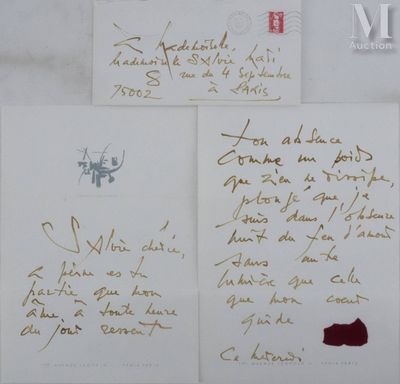 M
Auction
à Mademoiselle,
Mademoiselle Sylvie
8 rue du 4 Septembre
75002 à PARIS
Sylvie chérie,
à peine es tu
partie que mon
âme à toute heure
du jour ressent
ton absence
comme un poids
que rien ne dissipe,
plongé que je
suis dans l'obscure
nuit du feu d'amour
sans autre
lumière que celle
que mon coeur
guide
Ce mercredi